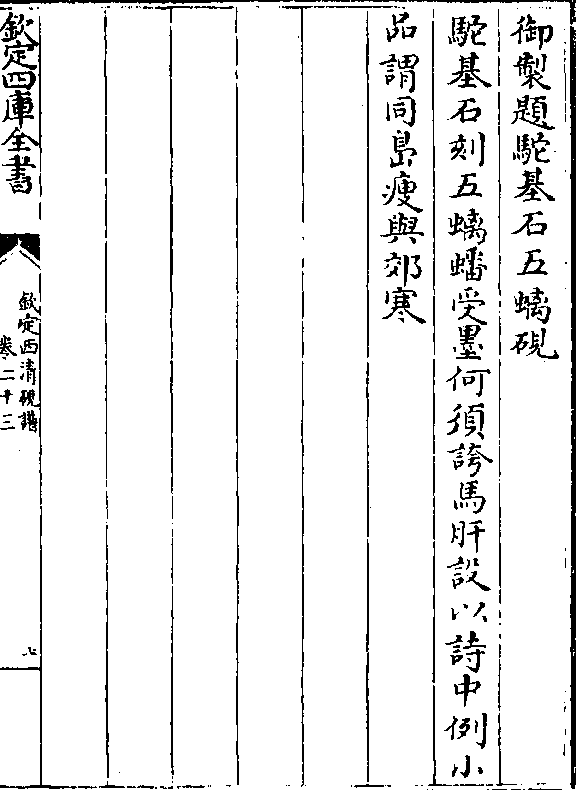 御製題駝基石五螭硯
駝基石刻五螭蟠受墨何須誇馬肝設以詩中例小
品謂同島瘦與郊寒
欽定四庫全書
欽定西清硯譜
卷二十三
七